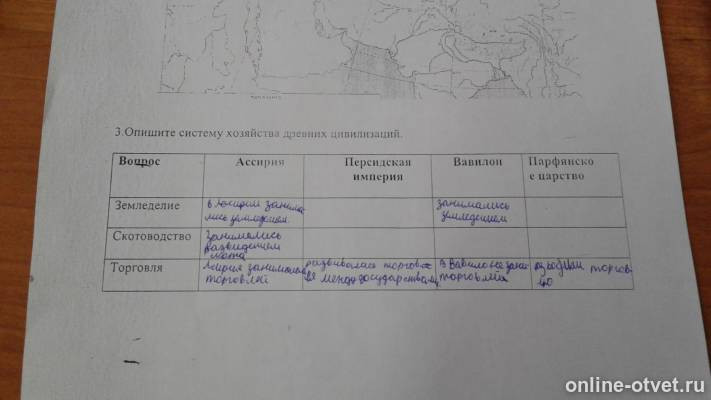 3.Опишите систему хозяйства древних цивилизаций.
Вопрос Ассирия Персидская империя Вавилон Парфянско е царство
Земледелие в Ассирии занима лись земледелием. занимались земледелием
Скотоводство Занимались разведением скота
Торговля Асирия занималась торговлей развивалась торгов ля между государствами В Вавилоне зани торговлей торгов
online-otvet.ru